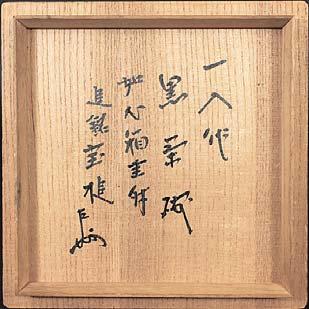 一入作
黒茶碗
如心箱書付
追銘宝槌